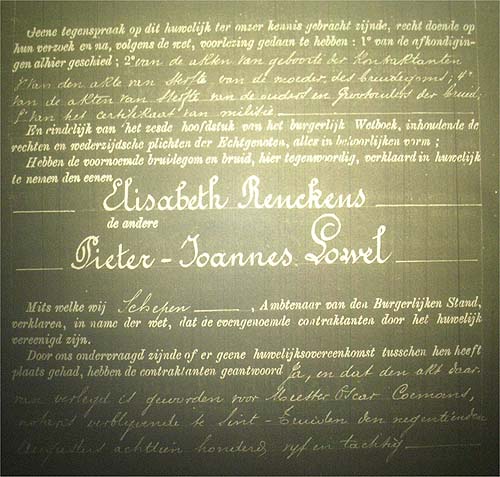 Geene tegenspraak op dit huwelijk ter onzer kennis gebracht zijnde, recht doende op
hun verzoek en na, volgens de wet, voorlezing gedaan te hebben : 1° van de afkondigin-
gen alhier geschied ; 2° van de akten van geboorte der Kontraktanten
3° van den akte van sterfte van de moeder des bruidegoms ; 4°
van de akten van sterfte van de ouders en Grootouders der bruid ;
5° van het certifikaat van militie
En eindelijk van het zesde hoofdstuk van het burgerlijk Wetboek, inhoudende de
rechten en wederzijdsche plichten der Echtgenoten, alles in behoorlijken vorm ;
Hebben de voornoemde bruidegom en bruid, hier tegenwoordig, verklaard in huwelijk
te nemen den eenen
Elisabeth Renckens
de andere
Pieter-Joannes Lowel
Mits welke wij Schepen , Ambtenaar van den Burgerlijken Stand,
verklaren, in name der wet, dat de evengenoemde contraktanten door het huwelijk
vereenigd zijn.
Door ons ondervraagd zijnde of er geene huwelijksovereenkomst tusschen hen heeft
plaats gehad, hebben de contraktanten geantwoord Ja, en dat den akt daar-
van verleyd is geworden voor Meester Oscar Coemans,
notaris verblyvende te Sint-Truiden den negentienden
Augustus achttien honderd vyf en tachtig